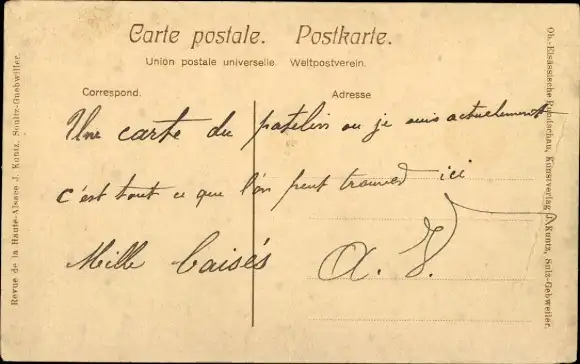 Carte postale. Postkarte.
Union postale universelle Weltpostverein.
Correspond. Adresse
Une carte du patelin ou je suis actuellement
c'est tout ce que l'on peut trouver ici
Mille baisés
A. V.
Revue de la Haute-Alsace J. Kuntz, Soultz-Guebwiller.
Ob.-Elsässische Rundschau, Kunstverlag J. Kuntz, Sulz-Gebweiler.